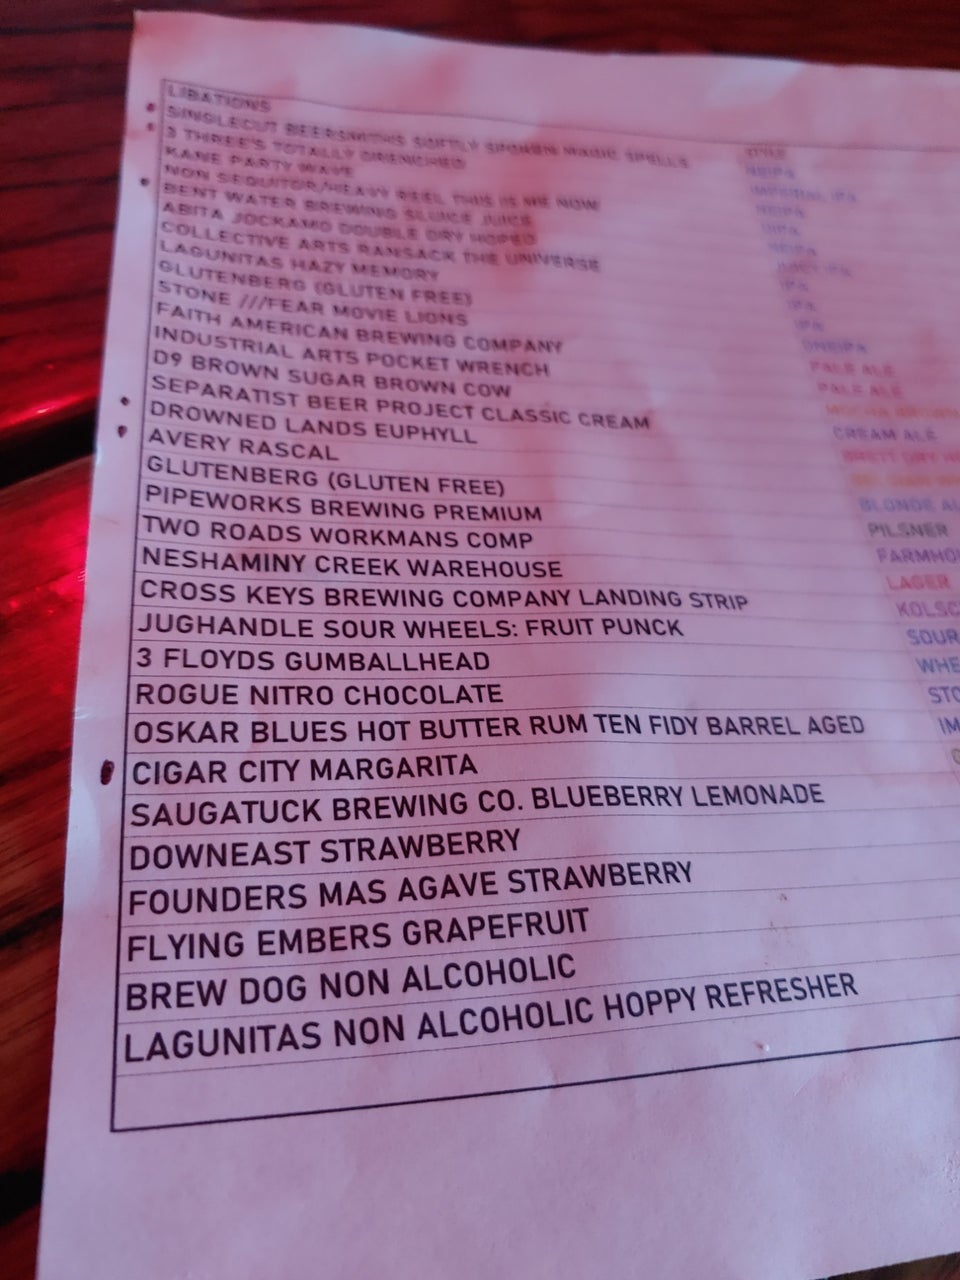 LIBATIONS STYLE
SINGLECUT BEERSMITHS SOFTLY SPOKEN MAGIC SPELLS NEIPA
3 THREE'S TOTALLY DRENCHED IMPERIAL IPA
KANE PARTY WAVE NEIPA
NON SEQUITOR/HEAVY REEL THIS IS ME NOW DIPA
BENT WATER BREWING SLUICE JUICE NEIPA
ABITA JOCKAMO DOUBLE DRY HOPED JUICY IPA
COLLECTIVE ARTS RANSACK THE UNIVERSE IPA
LAGUNITAS HAZY MEMORY IPA
GLUTENBERG (GLUTEN FREE) IPA
STONE ///FEAR MOVIE LIONS DNEIPA
FAITH AMERICAN BREWING COMPANY PALE ALE
INDUSTRIAL ARTS POCKET WRENCH PALE ALE
D9 BROWN SUGAR BROWN COW MOCHA BROWN
SEPARATIST BEER PROJECT CLASSIC CREAM CREAM ALE
DROWNED LANDS EUPHYLL BRETT DRY H
AVERY RASCAL BELGIAN WH
GLUTENBERG (GLUTEN FREE) BLONDE AL
PIPEWORKS BREWING PREMIUM PILSNER
TWO ROADS WORKMANS COMP FARMHOU
NESHAMINY CREEK WAREHOUSE LAGER
CROSS KEYS BREWING COMPANY LANDING STRIP KOLSC
JUGHANDLE SOUR WHEELS: FRUIT PUNCK SOUR
3 FLOYDS GUMBALLHEAD WHE
ROGUE NITRO CHOCOLATE STO
OSKAR BLUES HOT BUTTER RUM TEN FIDY BARREL AGED IM
CIGAR CITY MARGARITA
SAUGATUCK BREWING CO. BLUEBERRY LEMONADE
DOWNEAST STRAWBERRY
FOUNDERS MAS AGAVE STRAWBERRY
FLYING EMBERS GRAPEFRUIT
BREW DOG NON ALCOHOLIC
LAGUNITAS NON ALCOHOLIC HOPPY REFRESHER